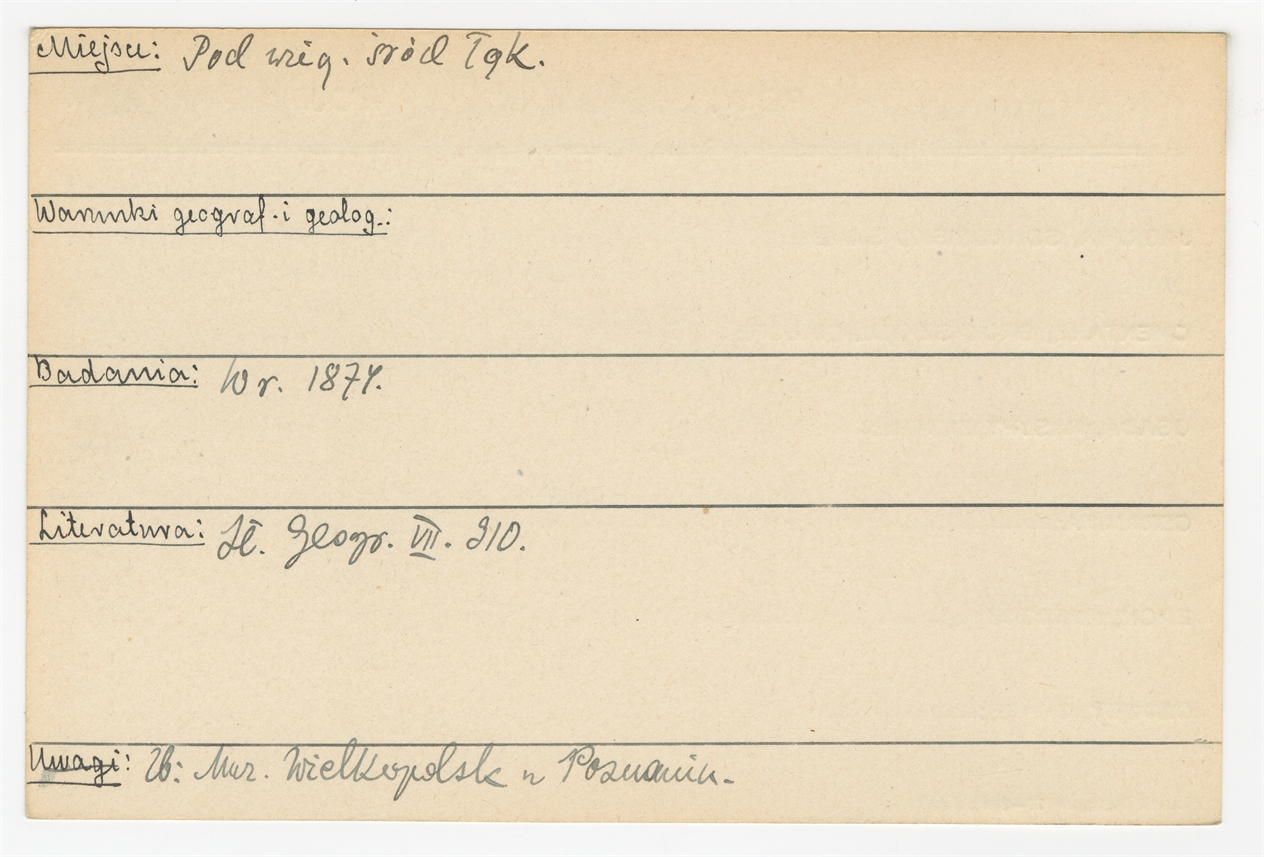 Miejsce: Pod wsią. śród łąk.
Warunki geograf. i geolog.:
Badania: W r. 1874.
Literatura: Sł. Geogr. VII. 910.
Uwagi: Zb: Muz. Wielkopolsk w Poznaniu.